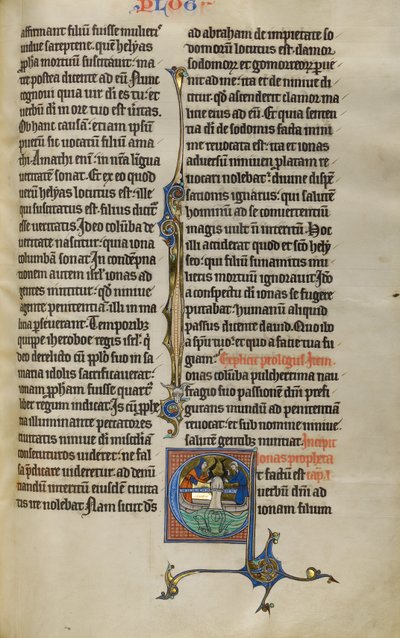 PLOG
affirmant filiu fuisse mulieris
vidue sareptene. que helyas
ppha mortuu suscitavit. ma
tre postea dicente ad eu. Nunc
cognovi quia vir di es tu. et
verbu di in ore tuo est veritas.
Ob hanc causa. etiam ipsu
pueru sic vocatu filiu ama
thi. Amathi eni. in nra lingua
veritate sonat. Et ex eo quod
veru helyas locutus est. ille
qui suscitatus est. filius dicit
esse veritatis. Ideo coluba de
veritate nascitur. quia iona
columba sonat. In condepna
tionem autem isrl ionas ad
gentes mittitur. qd ninive
agente penitentia. illi in ma
licia perseverant. Temporibz
quippe iheroboe regis isrl. q
deo derelicto cu pplo suo in sa
maria idolis sacrificaverat.
ionam ppham fuisse quart
liber regum indicat. Is cu pphe
tia illuminante peccatores
civitatis ninive di miscdia
consecuturos videret. ne fal
sa pdicare videretur. ad denu
tiandu interitu eiusdem civita
tis ire nolebat. Nam sicut ds
ad abraham de impietate so
domoru locutus est. clamor
sodomor et gomorreor pve
nit ad me. ita et de ninive di
citur. qd ascenderit clamor ma
licie eius ad eu. Et quia senten
tia di de sodomis facta mini
me revocata est. ita et ionas
adversu niniven platam re
vocari nolebat. divine dispen
sationis ignarus. qui salute
hominu ad se convertentium
magis vult qm interitu. Hoc
illi acciderat quod et sco helye
seo. qui filiu sunamitis mu
lieris mortuu ignoravit. Iste
a conspectu di ionas se fugere
putabat. humanu aliquid
passus dicente david. Quo ibo
a spu tuo. et quo a facie tua fu
giam. Explicit prologus. Item.
Ionas coluba pulcherrima nau
fragio suo passione dni prefi
gurans mundu ad penitentia
revocat. et sub nomine ninive.
salute gentibz nuntiat. Incipit
ionas propheta
t factu est capl. I.
verbu dni ad
ionam filium